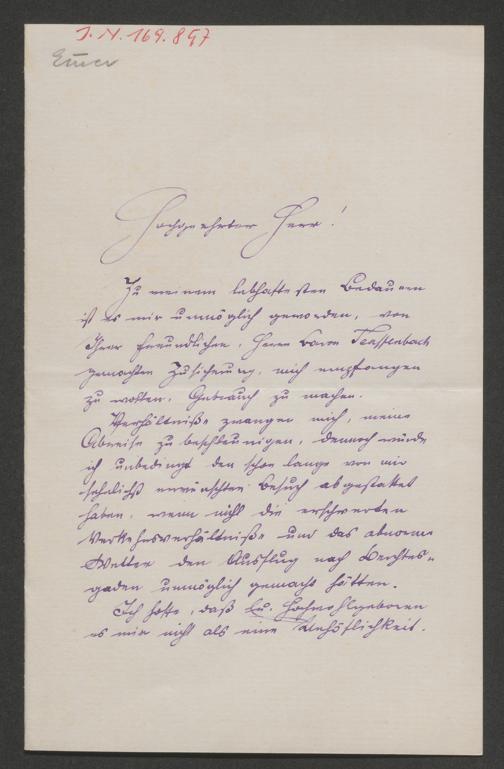 J. N. 169.897
Hochgeehrter Herr!
Zu meinem lebhaftesten Bedauern
ist es mir unmöglich geworden, von
Ihrer freundlichen, Herrn Baron
gemachten Zusicherung, mich empfangen
zu wollen, Gebrauch zu machen.
Verhältniße zwangen mich, meine
Abreise zu beschleunigen, dennoch würde
ich unbedingt den schon lange von mir
sehnlichst erwünschten Besuch abgestattet
haben, wenn nicht die erschwerten
Verkehrsverhältniße und das abnorme
Wetter den Ausflug nach Berchtes-
gaden unmöglich gemacht hätten.
Ich hoffe, daß Eu. Hochwohlgeboren
es mir nicht als eine Unhöflichkeit.